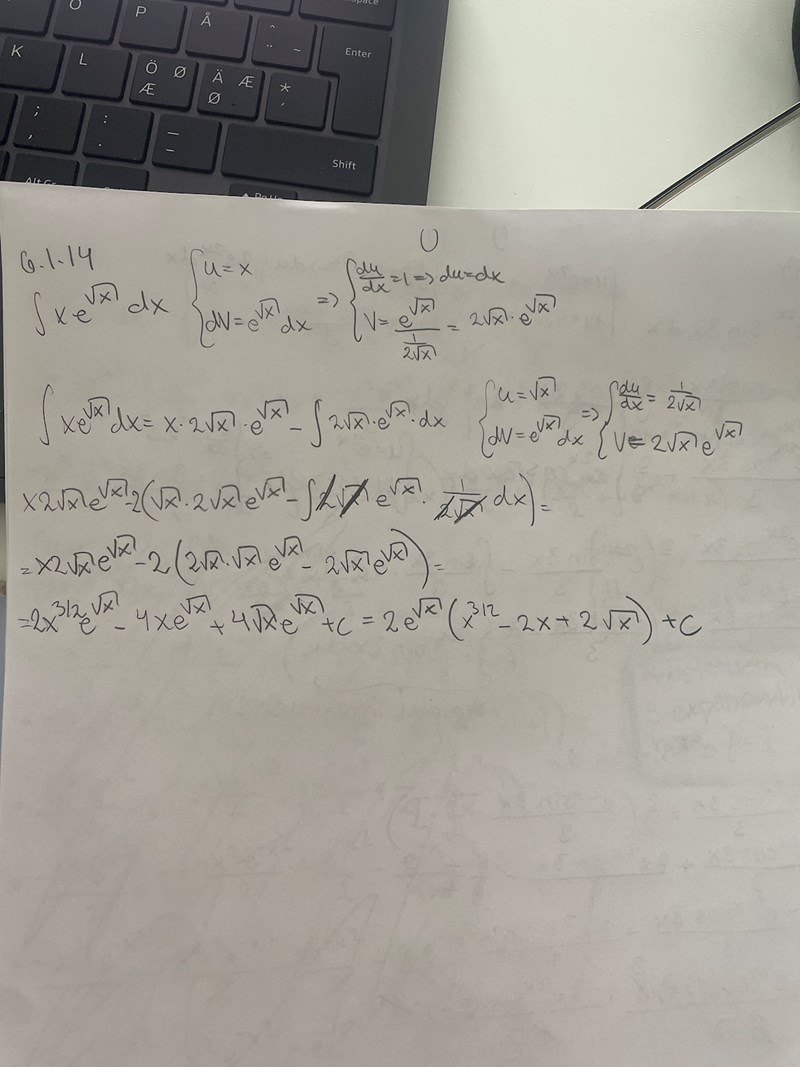 O P Å ^ ¨ ~ Enter
K L Ö Ø Æ Ä Æ Ø * '
; , : . — – Shift
Alt Gr
U
6.1.14
∫ x e^{√x} dx { u = x ; dV = e^{√x} dx => { du/dx = 1 => du = dx ; V = e^{√x} / (1/(2√x)) = 2√x · e^{√x}
∫ x e^{√x} dx = x · 2√x · e^{√x} - ∫ 2√x · e^{√x} · dx { u = √x ; dV = e^{√x} dx => { du/dx = 1/(2√x) ; V = 2√x e^{√x}
x 2√x e^{√x} - 2(√x · 2√x e^{√x} - ∫ 2√x e^{√x} · 1/(2√x) dx) =
= x 2√x e^{√x} - 2(2√x · √x e^{√x} - 2√x e^{√x}) =
= 2x^{3/2} e^{√x} - 4x e^{√x} + 4√x e^{√x} + C = 2e^{√x} (x^{3/2} - 2x + 2√x) + C